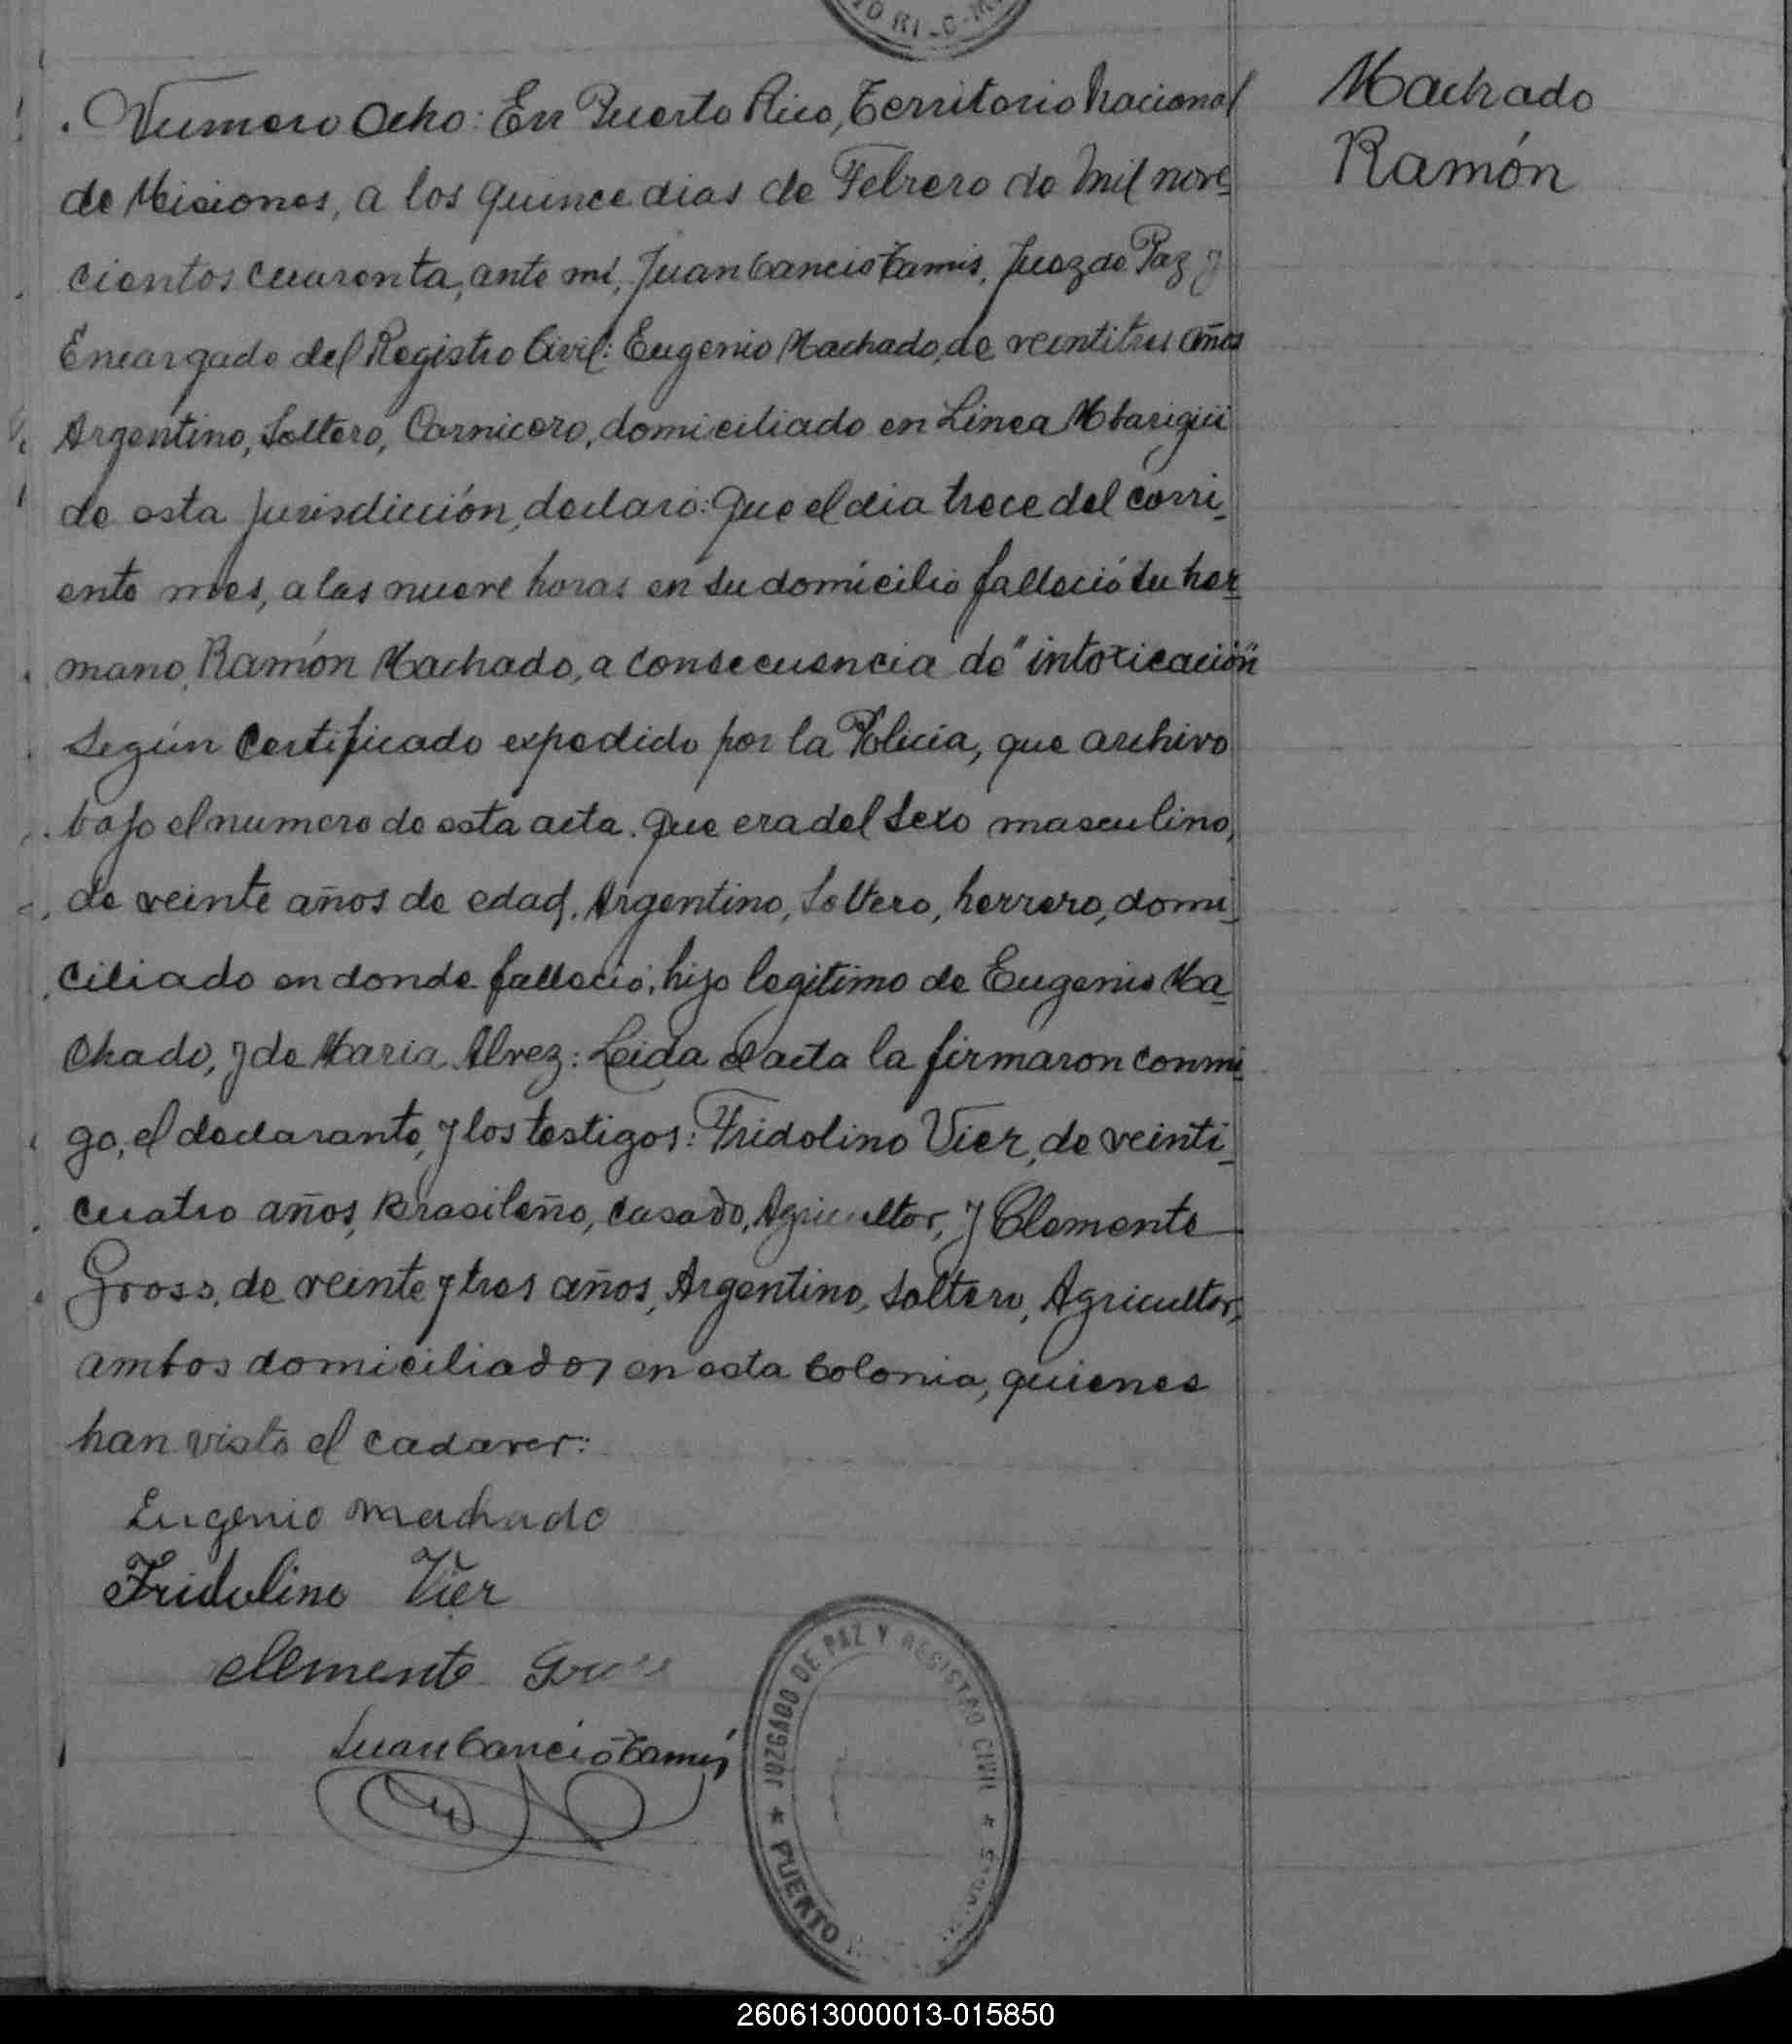 Numero Ocho: En Puerto Rico, Territorio Nacional
de Misiones, a los quince dias de Febrero de mil nove-
cientos cuarenta, ante mi, Juan Cancio Tamis, Juez de Paz y
Encargado del Registro Civil: Eugenio Machado, de veintitres años
Argentino, Soltero, Carnicero, domiciliado en Linea Mbarigüi
de esta jurisdicción, declaró: Que el dia trece del corri-
ente mes, a las nueve horas en su domicilio falleció su her-
mano, Ramón Machado, a consecuencia de "intoxicación"
Según Certificado expedido por la Policia, que archivo
bajo el numero de esta acta. Que era del Sexo masculino,
de veinte años de edad, Argentino, Soltero, herrero, domi-
ciliado en donde falleció, hijo legitimo de Eugenio Ma-
chado, y de Maria Alvez: Leida el acta la firmaron conmi-
go, el declarante, y los testigos: Fridolino Vier, de veinti-
cuatro años, Brasileño, casado, Agricultor, y Clemente
Gross, de veinte y tres años, Argentino, Soltero, Agricultor,
ambos domiciliados en esta Colonia, quienes
han visto el cadaver:
Eugenio Machado
Fridolino Vier
Clemente
Juan Cancio Tamis
Machado
Ramón
JUZGADO DE PAZ Y REGISTRO CIVIL
PUERTO
260613000013-015850